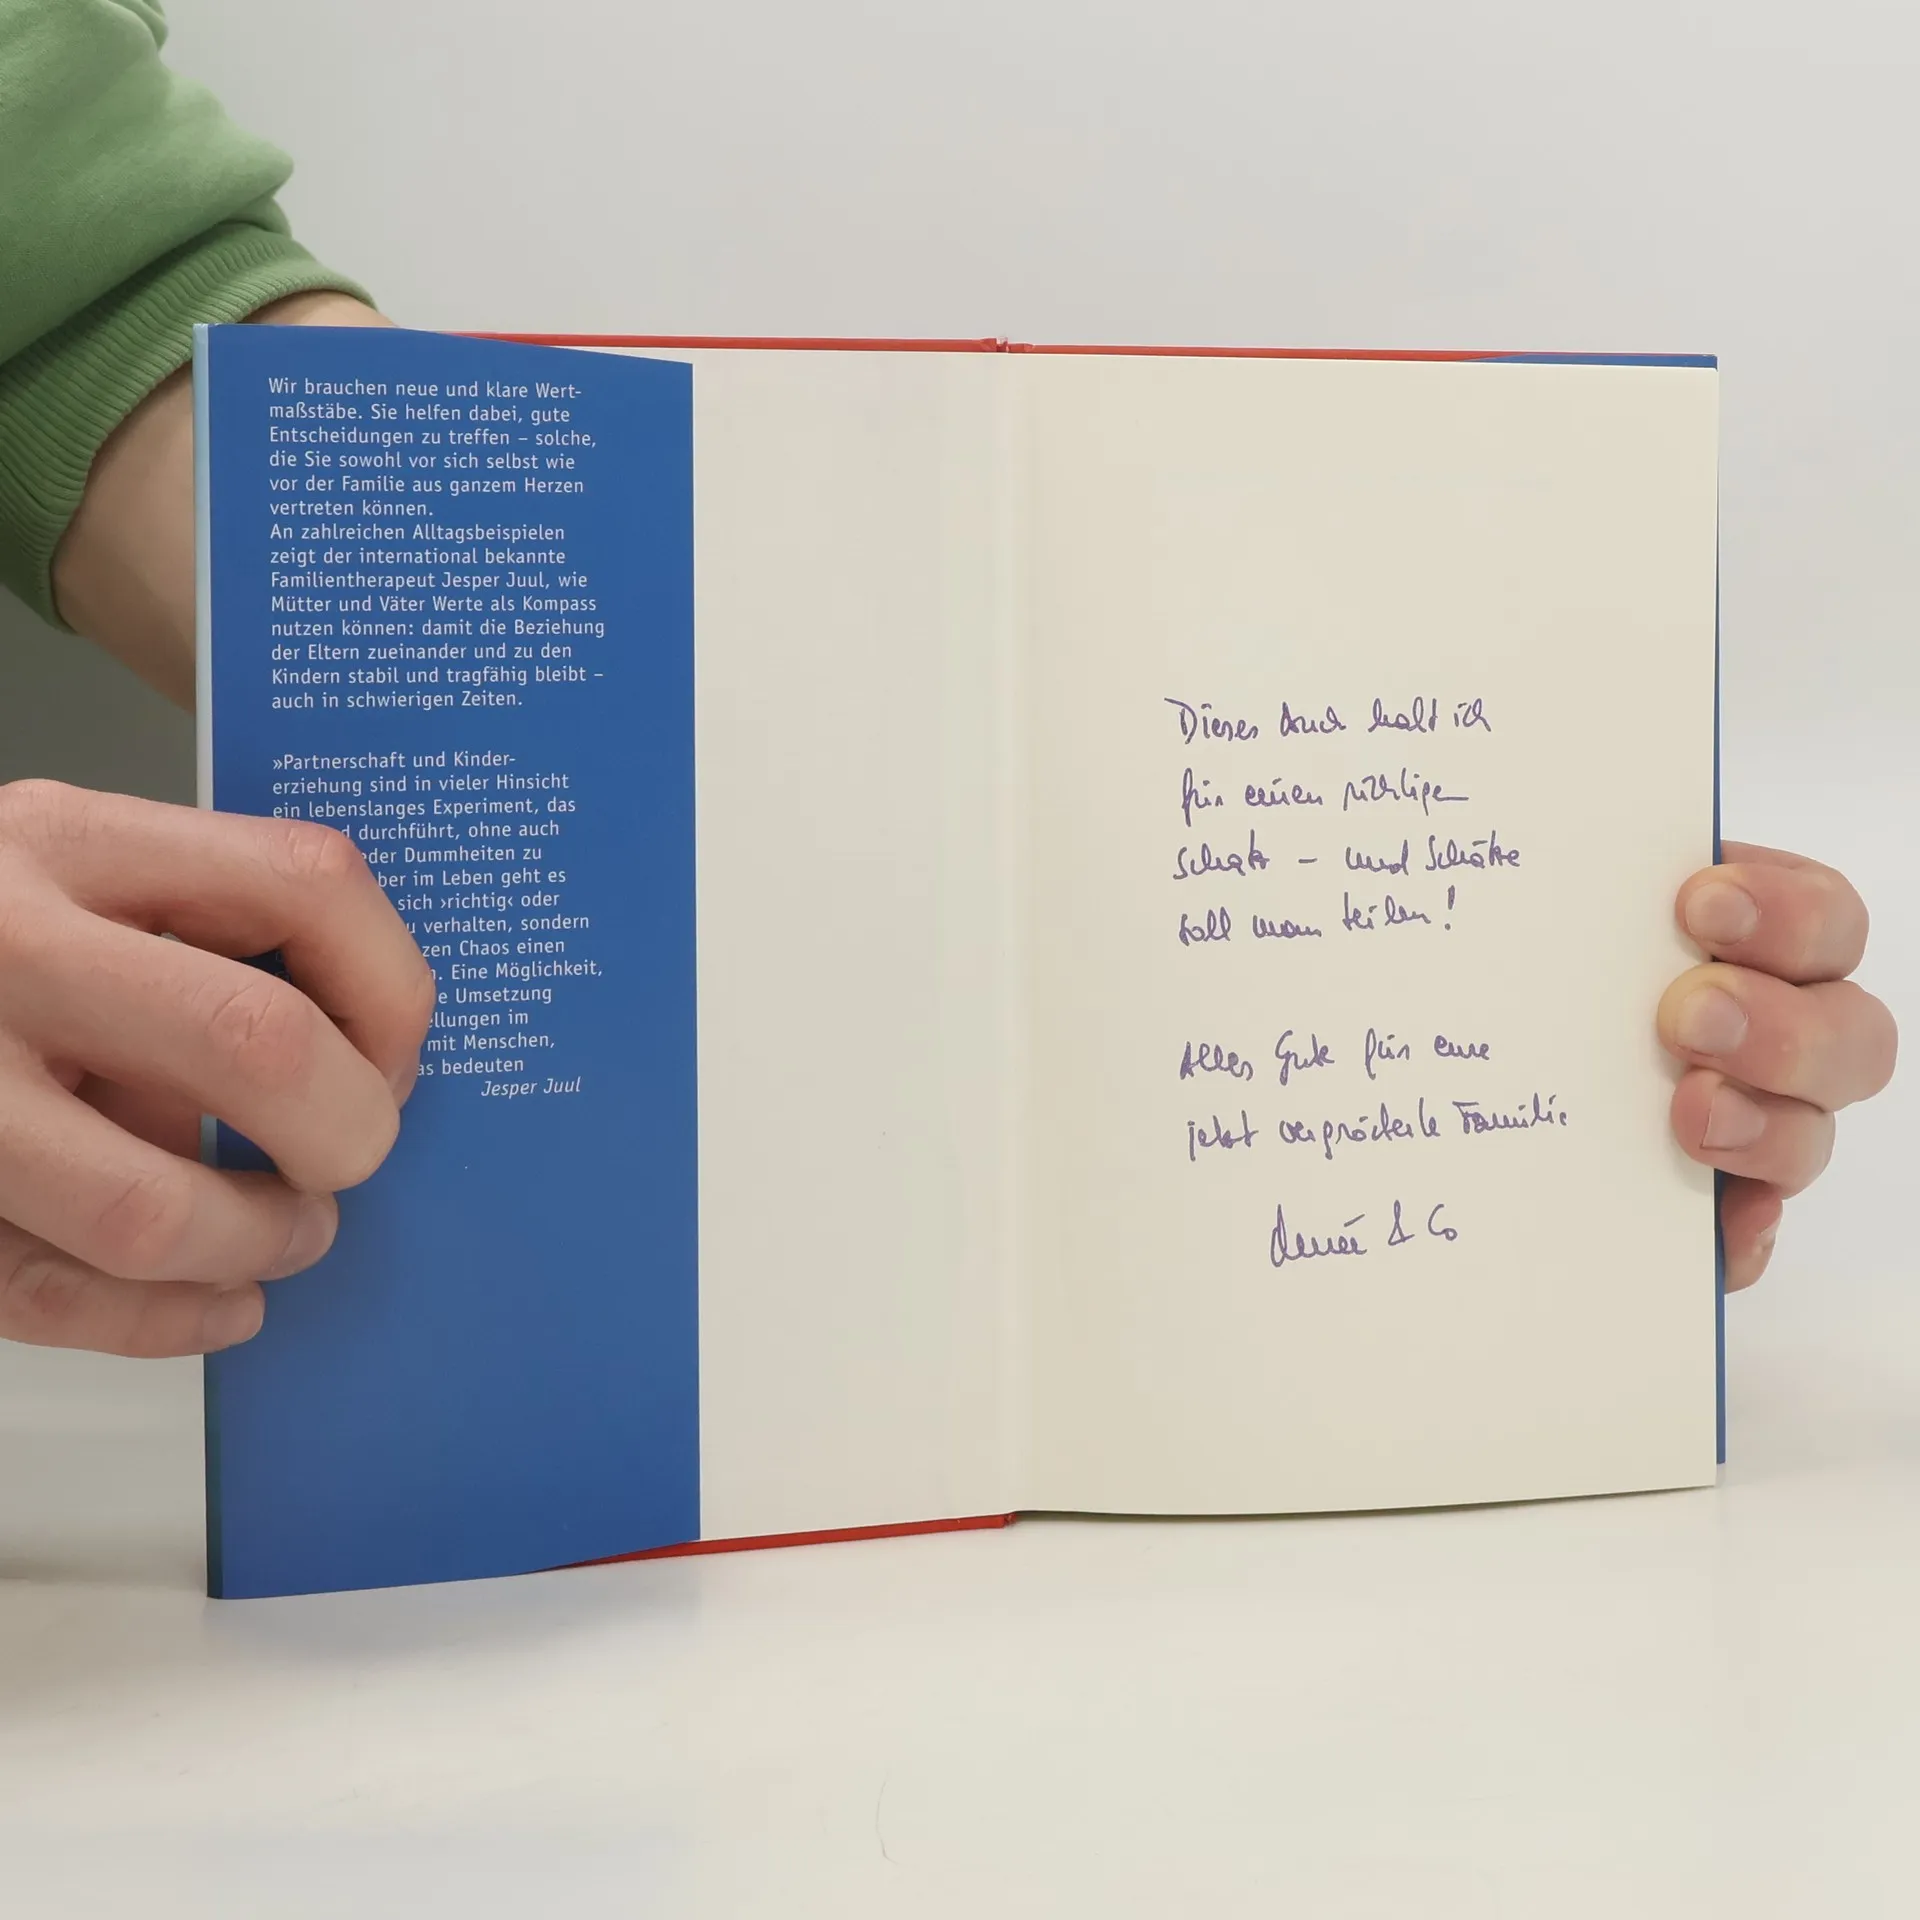 Wir brauchen neue und klare Wert-
maßstäbe. Sie helfen dabei, gute
Entscheidungen zu treffen – solche,
die Sie sowohl vor sich selbst wie
vor der Familie aus ganzem Herzen
vertreten können.
An zahlreichen Alltagsbeispielen
zeigt der international bekannte
Familientherapeut Jesper Juul, wie
Mütter und Väter Werte als Kompass
nutzen können: damit die Beziehung
der Eltern zueinander und zu den
Kindern stabil und tragfähig bleibt –
auch in schwierigen Zeiten.
»Partnerschaft und Kinder-
erziehung sind in vieler Hinsicht
ein lebenslanges Experiment, das
durchführt, ohne auch
Dummheiten zu
im Leben geht es
sich ›richtig‹ oder
verhalten, sondern
Chaos einen
Eine Möglichkeit,
Umsetzung
im
mit Menschen,
bedeuten
Jesper Juul
Dieses Buch halt ich
für einen richtigen
Schatz – und Schätze
soll man teilen!
Alles Gute für eure
jetzt vergrößerte Familie
& Co